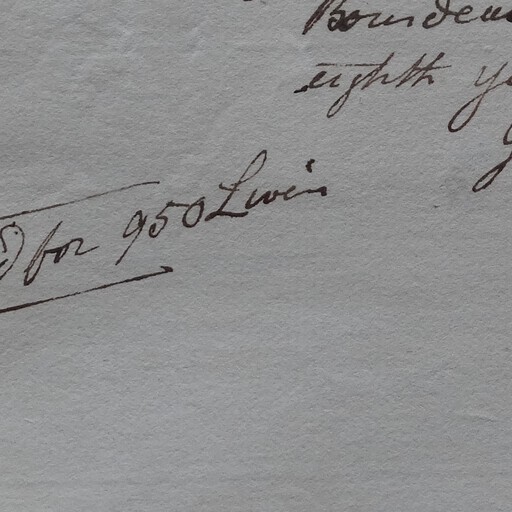 Bourdeau
eighth y
for 950 Livris